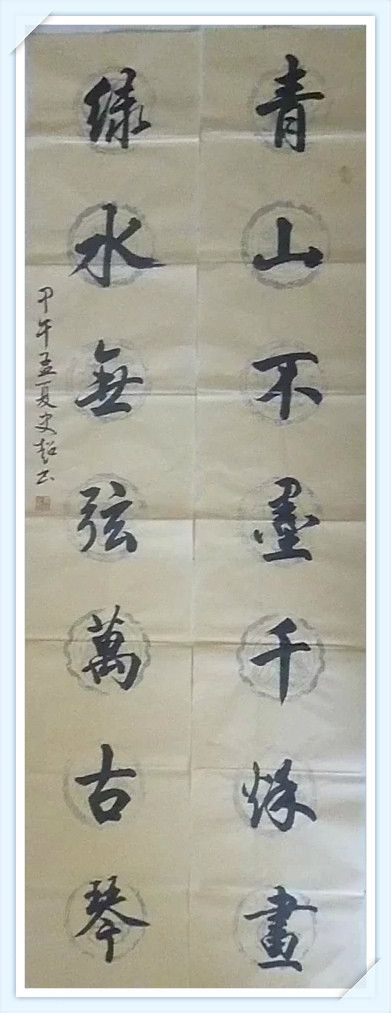 青山不墨千秌畫
綠水無弦萬古琴
甲午孟夏史书